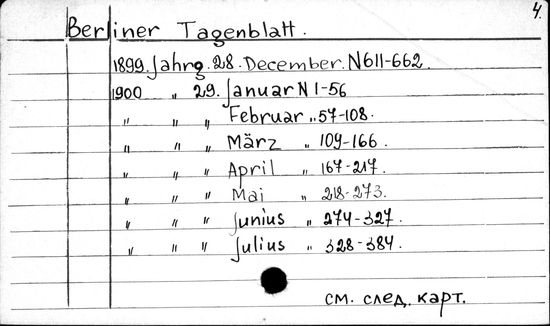 4.
Berliner Tagenblatt.
1899. Jahrg. 28. December. N 611-662
1900 " 29. Januar N 1-56
" " " Februar " 57-108.
" " " März " 109-166.
" " " April " 167-217.
" " " Mai " 218-273.
" " " Junius " 274-327.
" " " Julius " 328-384.
см. след. карт.